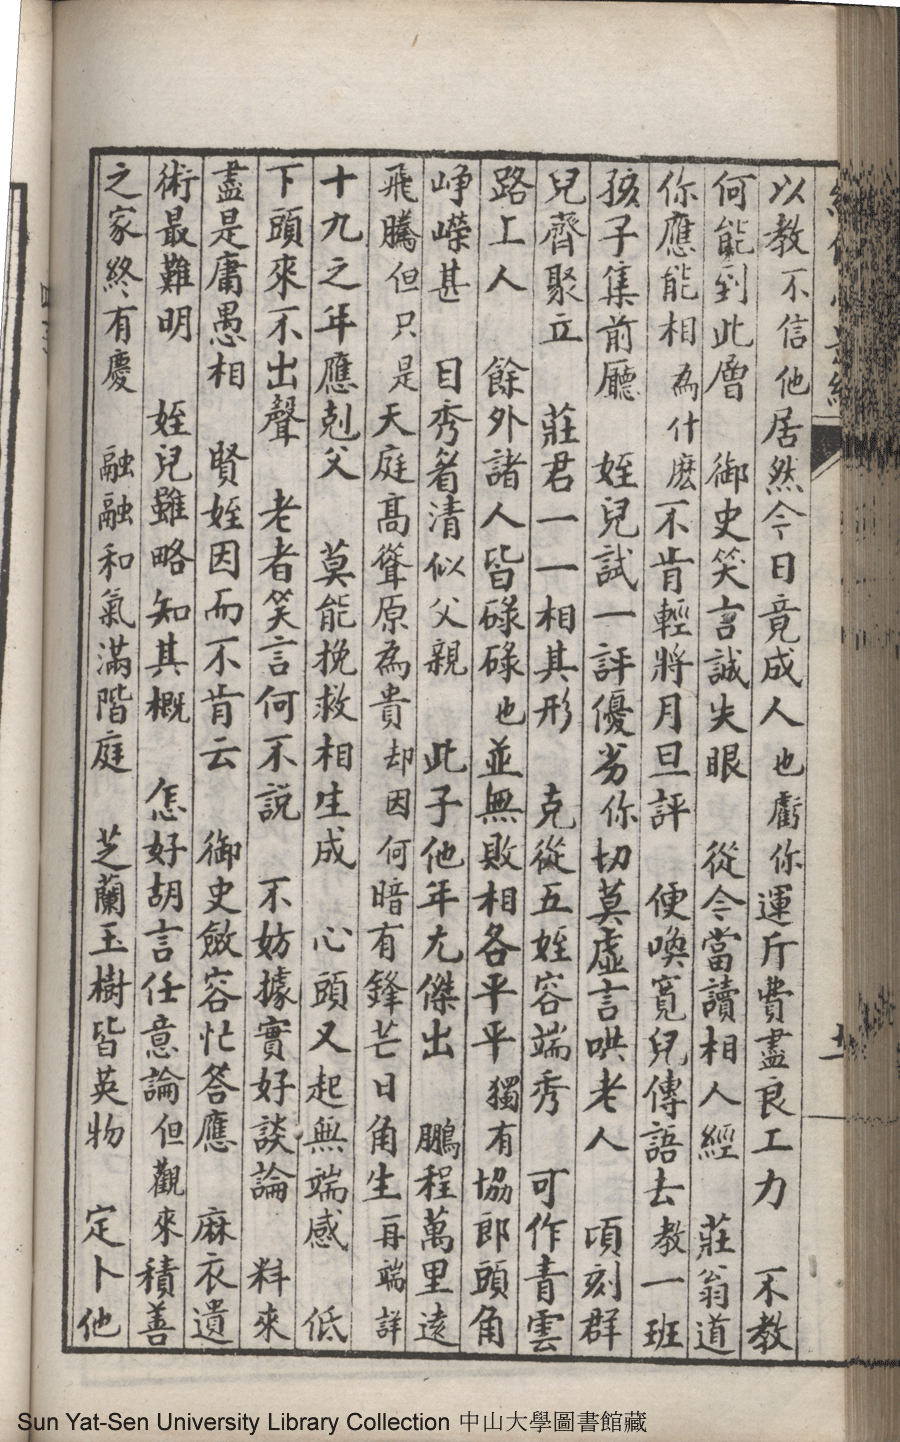 以教不信他居然今日竟成人也虧你運斤費盡良工力　不教
何能到此層　御史笑言誠失眼　從今當讀相人經　莊翁道
你應能相為什麽不肯輕將月旦評　便喚寬兒傳語去教一班
孩子集前廳　姪兒試一評優劣你切莫虛言哄老人　頃刻群
兒齊聚立　莊君一一相其形　克從五姪容端秀　可作青雲
路上人　餘外諸人皆碌碌也並無敗相各平平　獨有協郎頭角
崢嶸甚　目秀眉清似父親　此子他年尤傑出　鵬程萬里遠
飛騰但只是天庭高聳原為貴却因何暗有鋒芒日角生再端詳
十九之年應剋父　莫能挽救相生成　心頭又起無端感　低
下頭來不出聲　老者笑言何不説　不妨據實好談論　料來
盡是庸愚相　賢姪因而不肯云　御史斂容忙答應　麻衣遺
術最難明　姪兒雖略知其概　怎好胡言任意論但觀來積善
之家終有慶　融融和氣滿階庭　芝蘭玉樹皆英物　定卜他
Sun Yat-Sen University Library Collection 中山大學圖書館藏